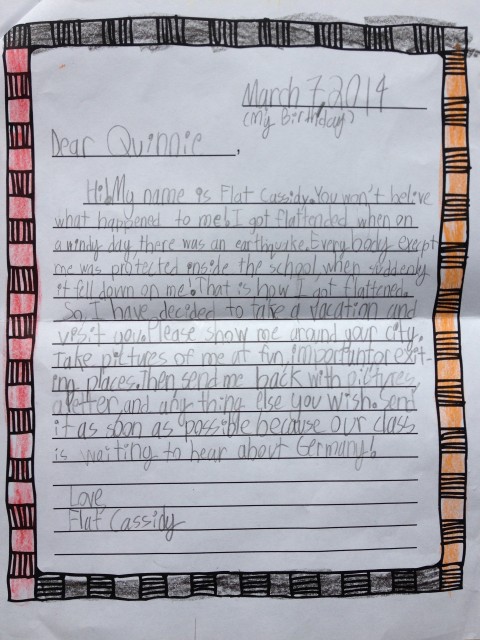 March 7, 2014
(My Birthday)
Dear Quinnie,
Hi! My name is Flat Cassidy. You won't belive
what happened to me! I got flattended when on
a windy day, there was an earthquake. Every body except
me was protected inside the school, when suddenly
it fell down on me! That is how I got flattened.
So, I have decided to take a vacation and
visit you. Please show me around your city.
Take pictures of me at fun, important or exit-
ing places. Then send me back with pictures,
a letter, and any thing else you wish. Send
it as soon as possible because our class
is waiting to hear about Germany!
Love
Flat Cassidy